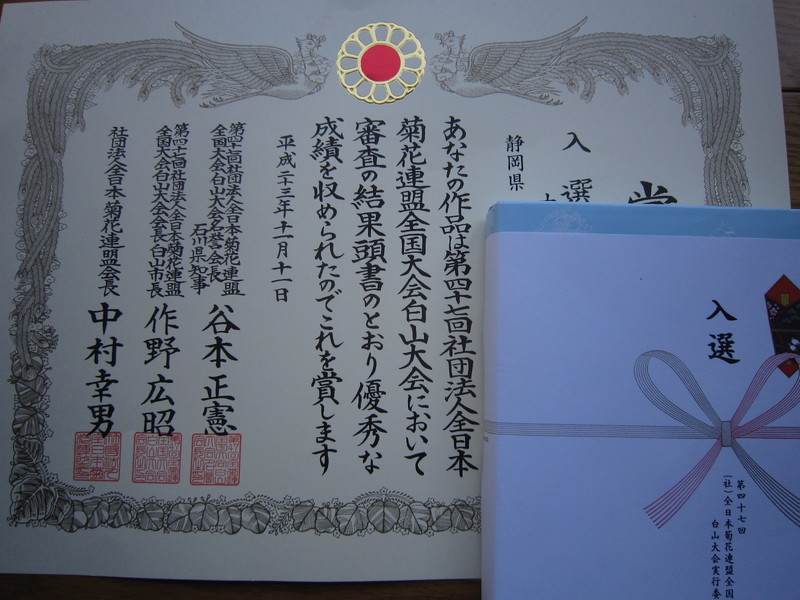 賞
入選
静岡県
あなたの作品は第四十七回社団法人全日本
菊花連盟全国大会白山大会において
審査の結果頭書のとおり優秀な
成績を収められたのでこれを賞します
平成二十三年十一月十一日
第四十七回社団法人全日本菊花連盟
全国大会白山大会名誉会長
石川県知事
谷本正憲
第四十七回社団法人全日本菊花連盟
全国大会白山大会会長白山市長
作野広昭
社団法人全日本菊花連盟会長
中村幸男
入選
第四十七回
(社)全日本菊花連盟全国
白山大会実行委